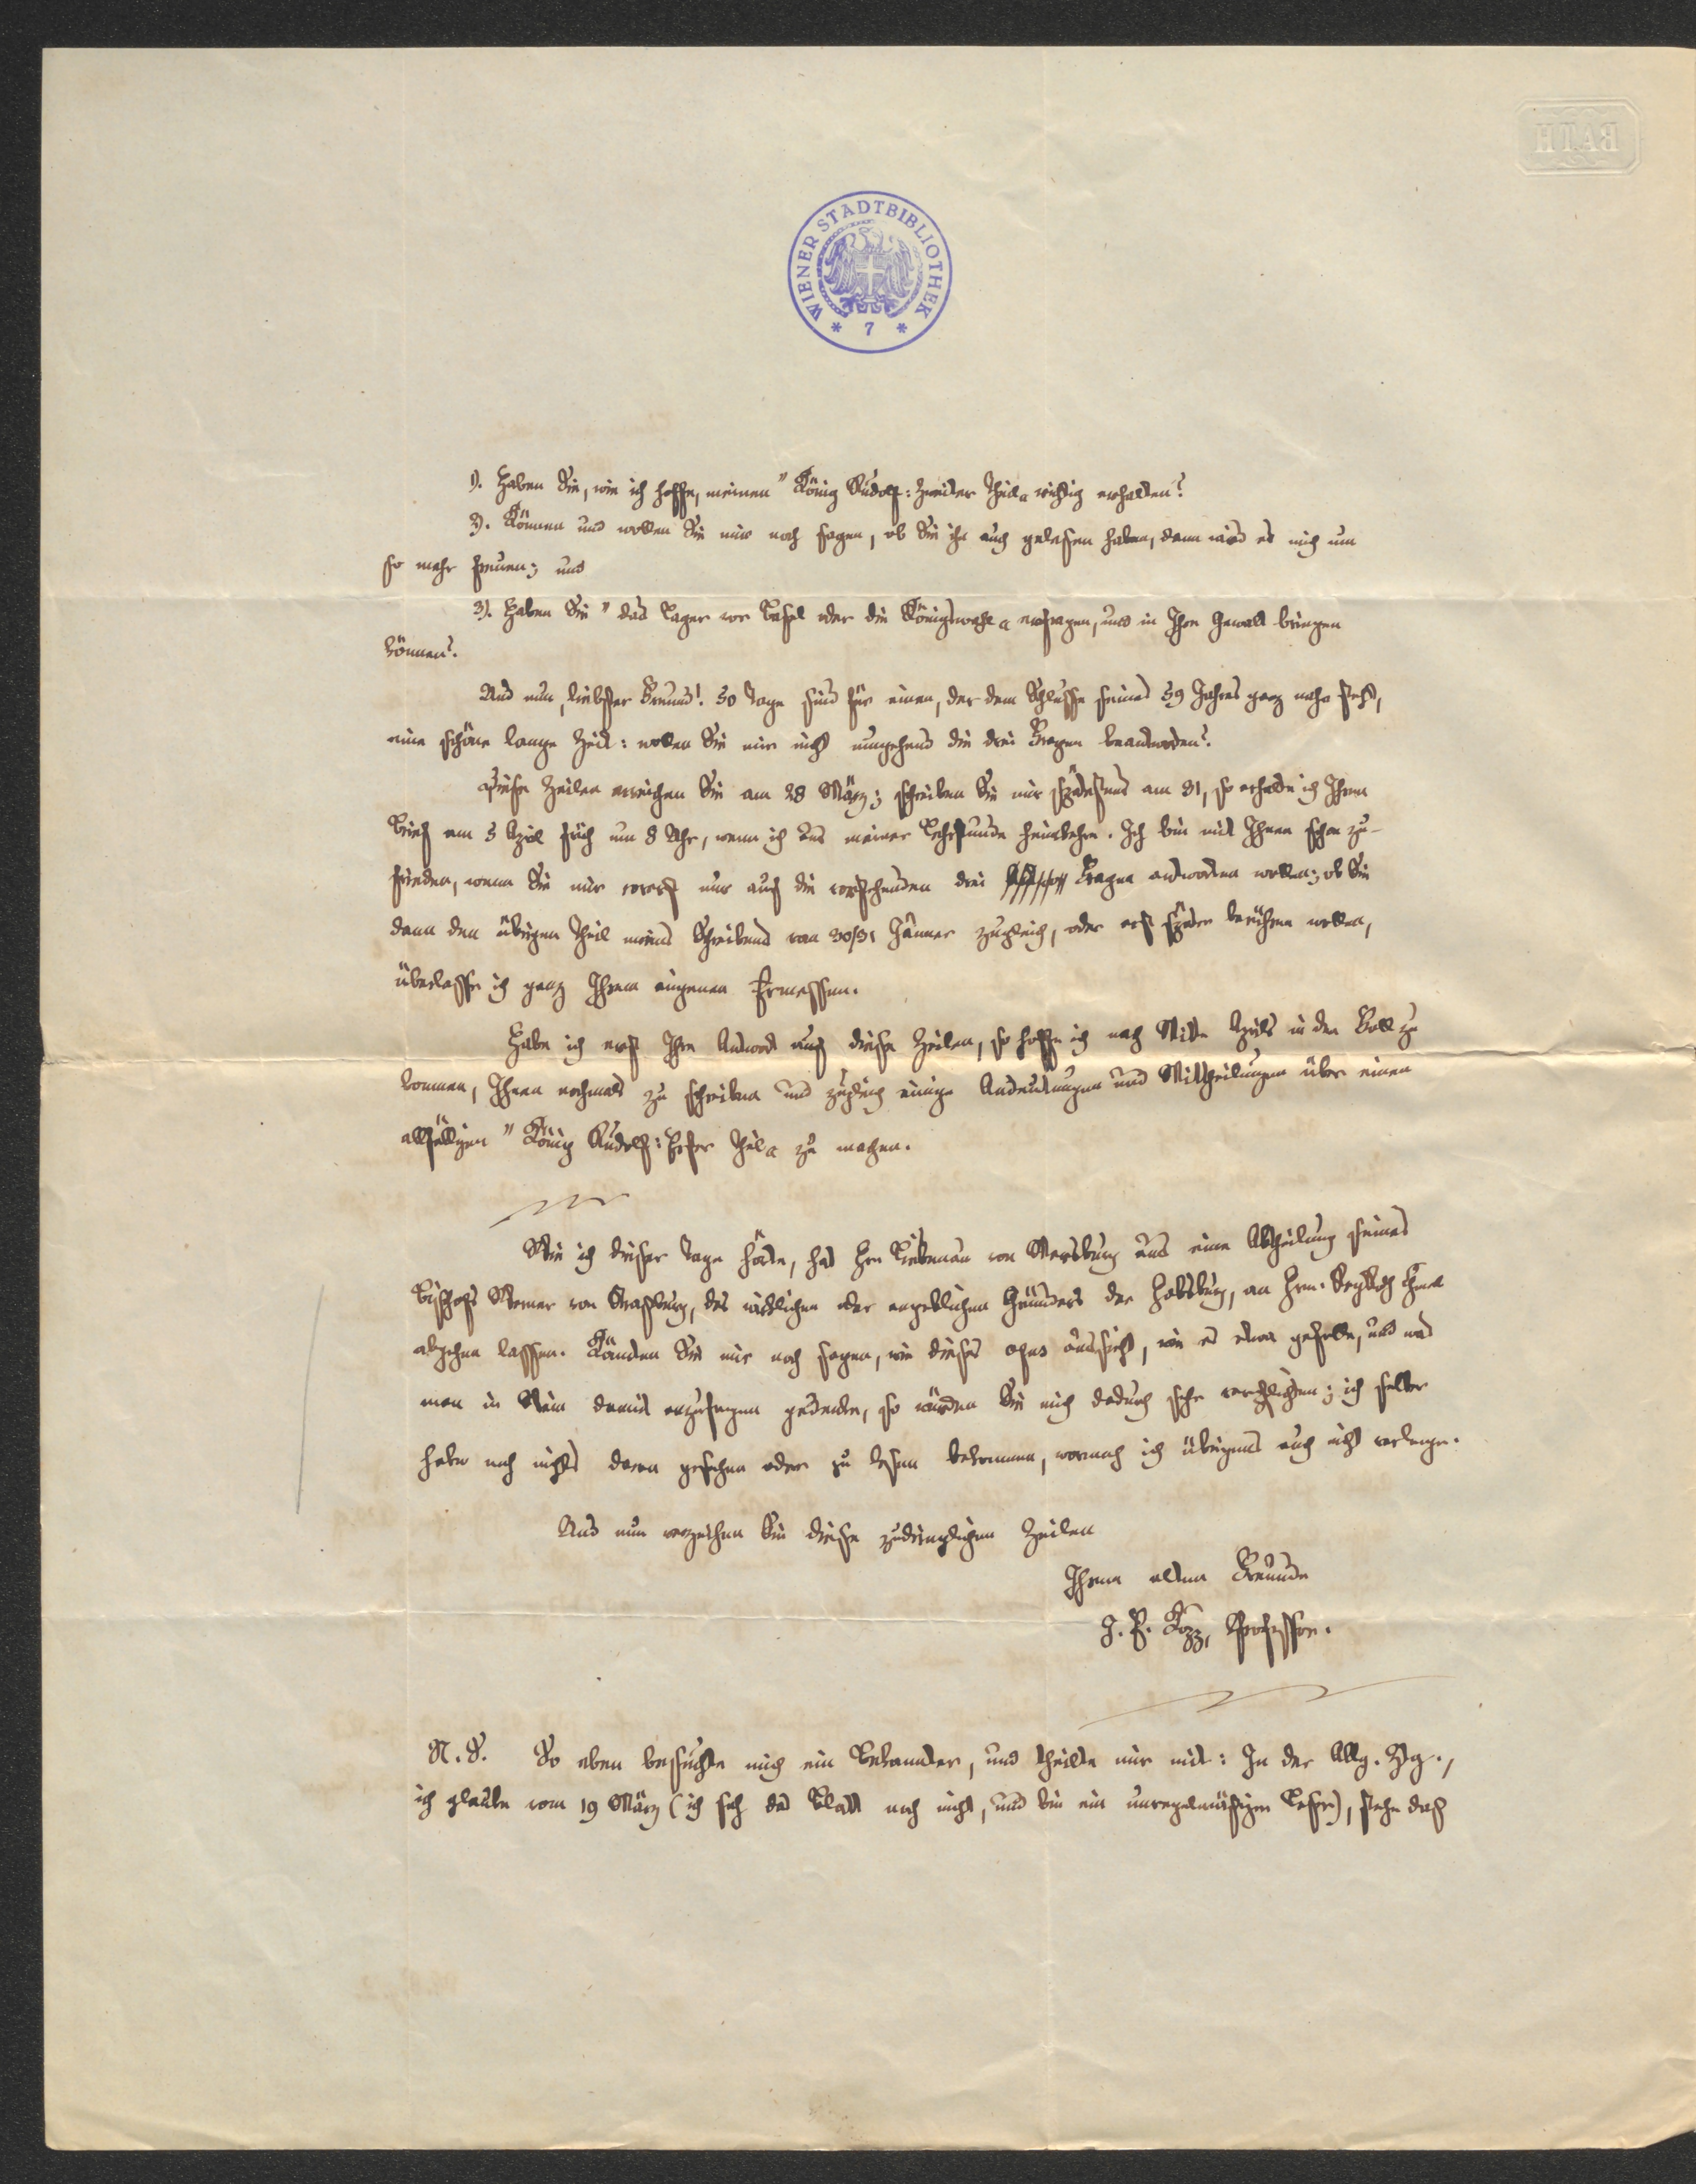 BATH
WIENER STADTBIBLIOTHEK
* 7 *
1). Haben Sie, wie ich hoffe, meinen "König Rudolf: Zweiter Theil" richtig erhalten?
2). Können und wollen Sie mir noch sagen, ob Sie ihn auch gelesen haben, dann wird es mich um
so mehr freuen; und
3). Haben Sie "das Lager vor Basel oder die Königswahl" erfragen, und in Ihre Gewalt bringen
können?
Und nun, liebster Freund! 50 Tage sind für einen, der dem Schlusse seines 59 Jahres ganz nahe steht,
eine schöne lange Zeit: wollen Sie mir nicht umgehend die drei Fragen beantworten?
Diese Zeilen erreichen Sie am 28 März; schreiben Sie mir spätestens am 31, so erhalte ich Ihren
Brief am 5 April früh um 8 Uhr, wenn ich aus meiner Lehrstunde heimkehre. Ich bin mit Ihnen schon zu-
frieden, wenn Sie mir vorerst nur auf die vorstehenden drei Fragen antworten wollen; ob Sie
dann den übrigen Theil meines Schreibens vom 30/31 Jänner zugleich, oder erst später berühren wollen,
überlasse ich ganz Ihrem eigenen Ermessen.
Habe ich erst Ihre Antwort auf diese Zeilen, so hoffe ich nach Mitte Aprils in den Fall zu
kommen, Ihnen nochmals zu schreiben und zugleich einige Andeutungen und Mittheilungen über einen
allfälligen "König Rudolf: Erster Theil" zu machen.
Wie ich dieser Tage hörte, hat Hr. Liebenau von Mersburg aus eine Abtheilung seines
Bischofs Werner von Strassburg, des wirklichen oder angeblichen Gründers der Habsburg, an Hrn. Chmel
abgehen lassen. Könnten Sie mir noch sagen, wie dieses opus aussieht, wie es etwa gefalle, und was
man in Wien damit anzufangen gedenke, so würden Sie mich dadurch sehr verpflichten; ich selber
habe noch nichts davon gesehen oder zu lesen bekommen, wornach ich übrigens auch nicht verlange.
Und nun verzeihen Sie diese zudringlichen Zeilen
Ihrem alten Freunde
J. E. Kopp, Professor.
N. S. So eben besuchte mich ein Bekannter, und theilte mir mit: In der Allg. Ztg.,
ich glaube vom 19 März (ich sah das Blatt noch nicht, und bin ein unregelmäßiger Leser), stehe daß